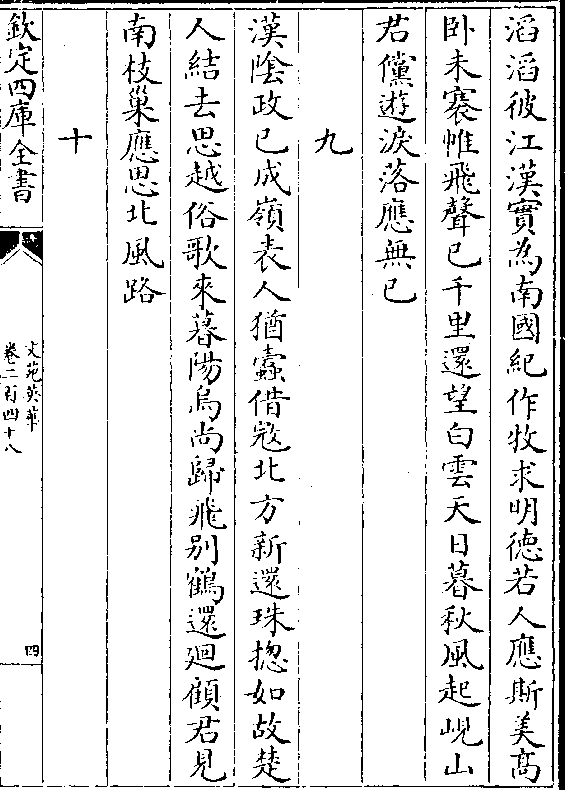 滔滔彼江漢實為南國紀作牧求明德若人應斯美髙
卧未褰帷飛聲已千里還望白雲天日暮秋風起峴山
君儻遊淚落應無已
九
漢陰政已成嶺表人猶蠹借宼北方新還珠揔如故楚
人結去思越俗歌來暮陽烏尚歸飛别鶴還廻顧君見
南枝巢應思北風路
十
欽定四庫全書
文苑英華
卷二百四十八
四